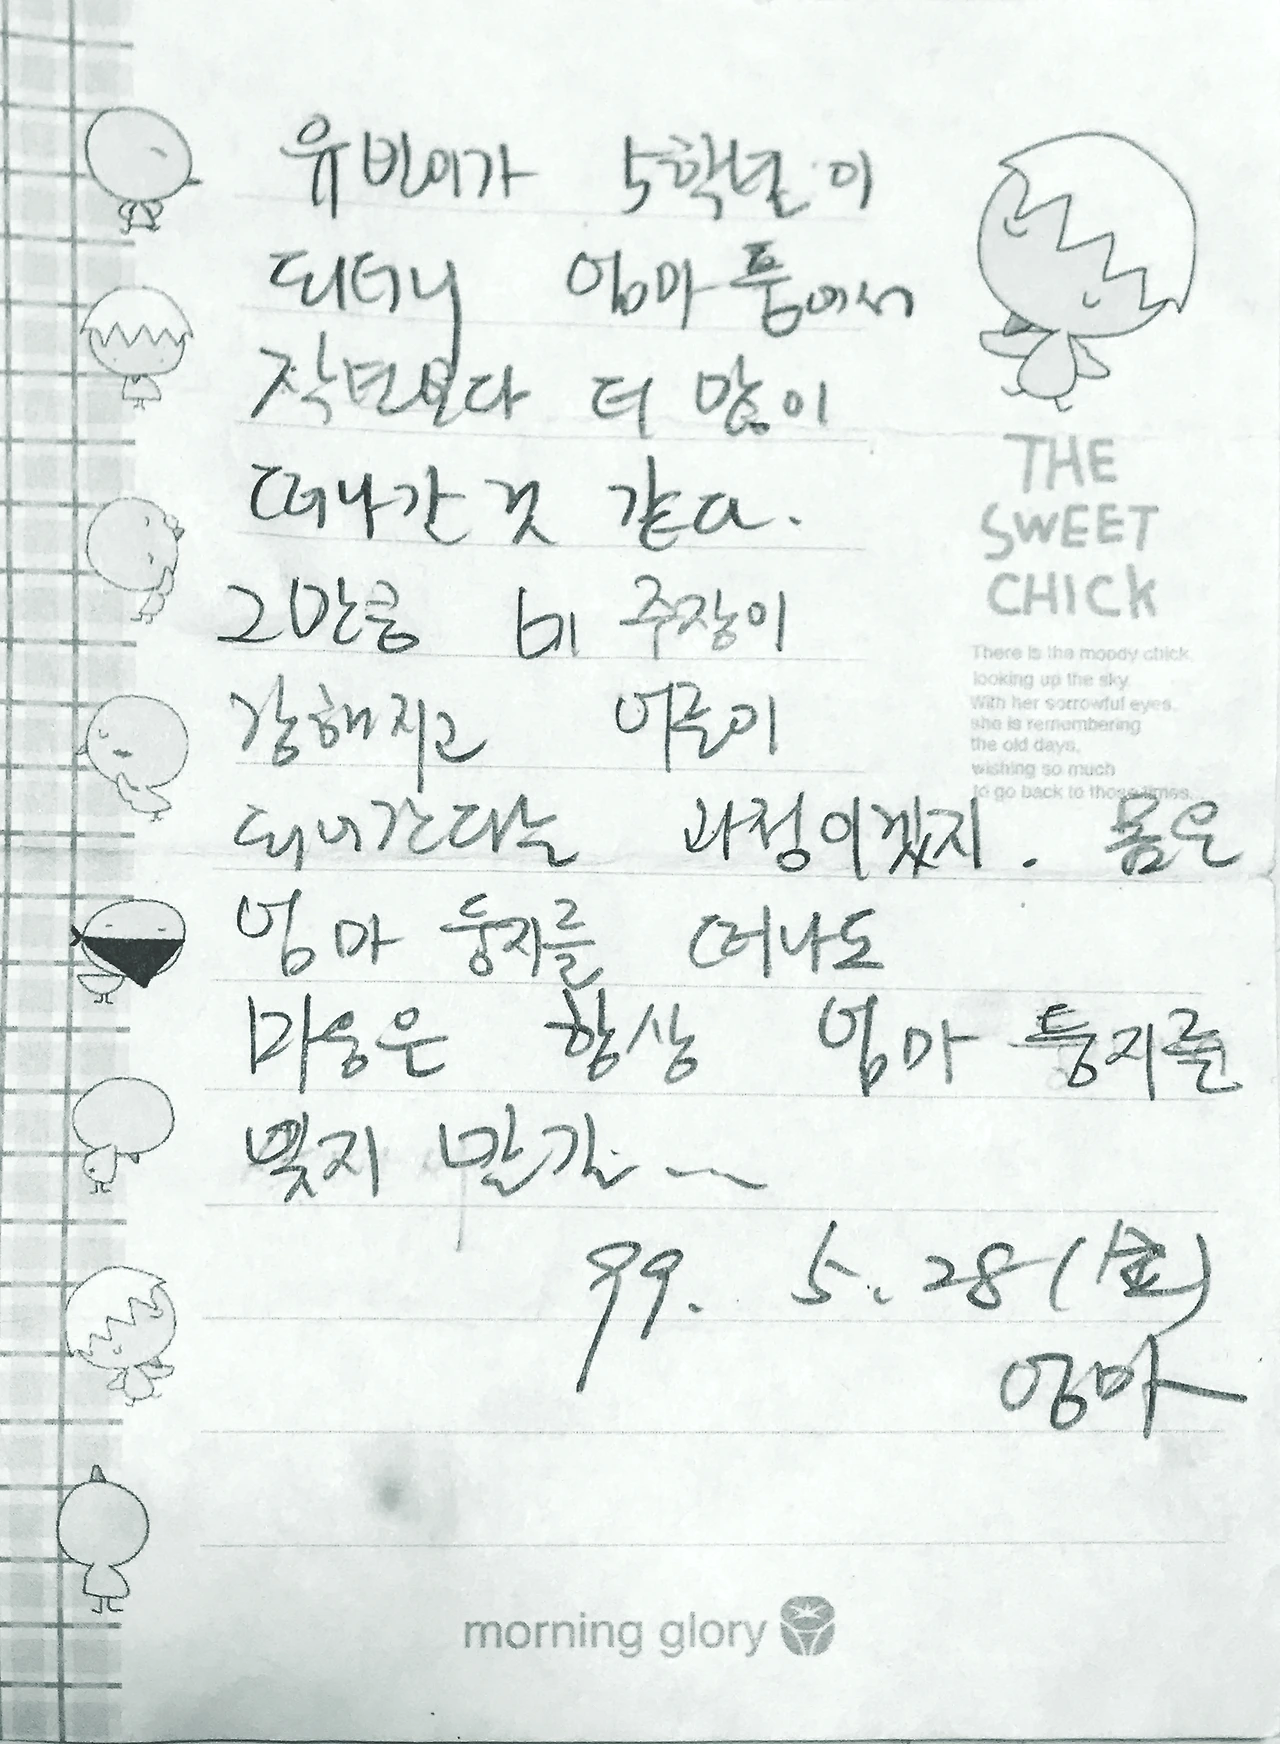 유빈이가 5학년이
되더니 엄마 품에서
작년보다 더 많이
떠나간 것 같다.
그만큼 네 주장이
강해지고 어른이
되어간다는 과정이겠지. 몸은
엄마 둥지를 떠나도
마음은 항상 엄마 둥지를
잊지 말길~
99. 5. 28 (金)
엄마
THE
SWEET
CHICK
There is the moody chick,
looking up the sky.
With her sorrowful eyes,
she is remembering
the old days,
wishing so much
to go back to those times...
morning glory